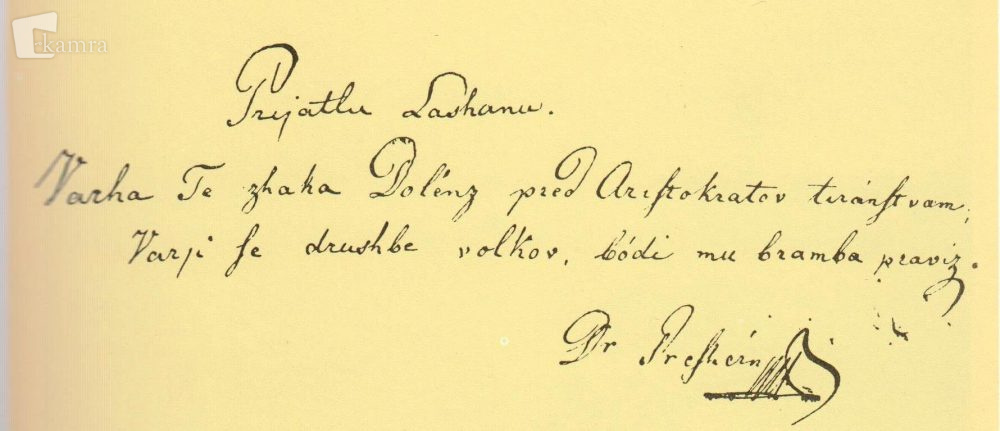 kamra
Prijatlu Lashanu.
Varha Te zhaka Dolénz pred Ariſtokratov tiránſtvam;
Varji ſe drushbe volkov, bódi mu bramba praviz.
Dr Preſhérn